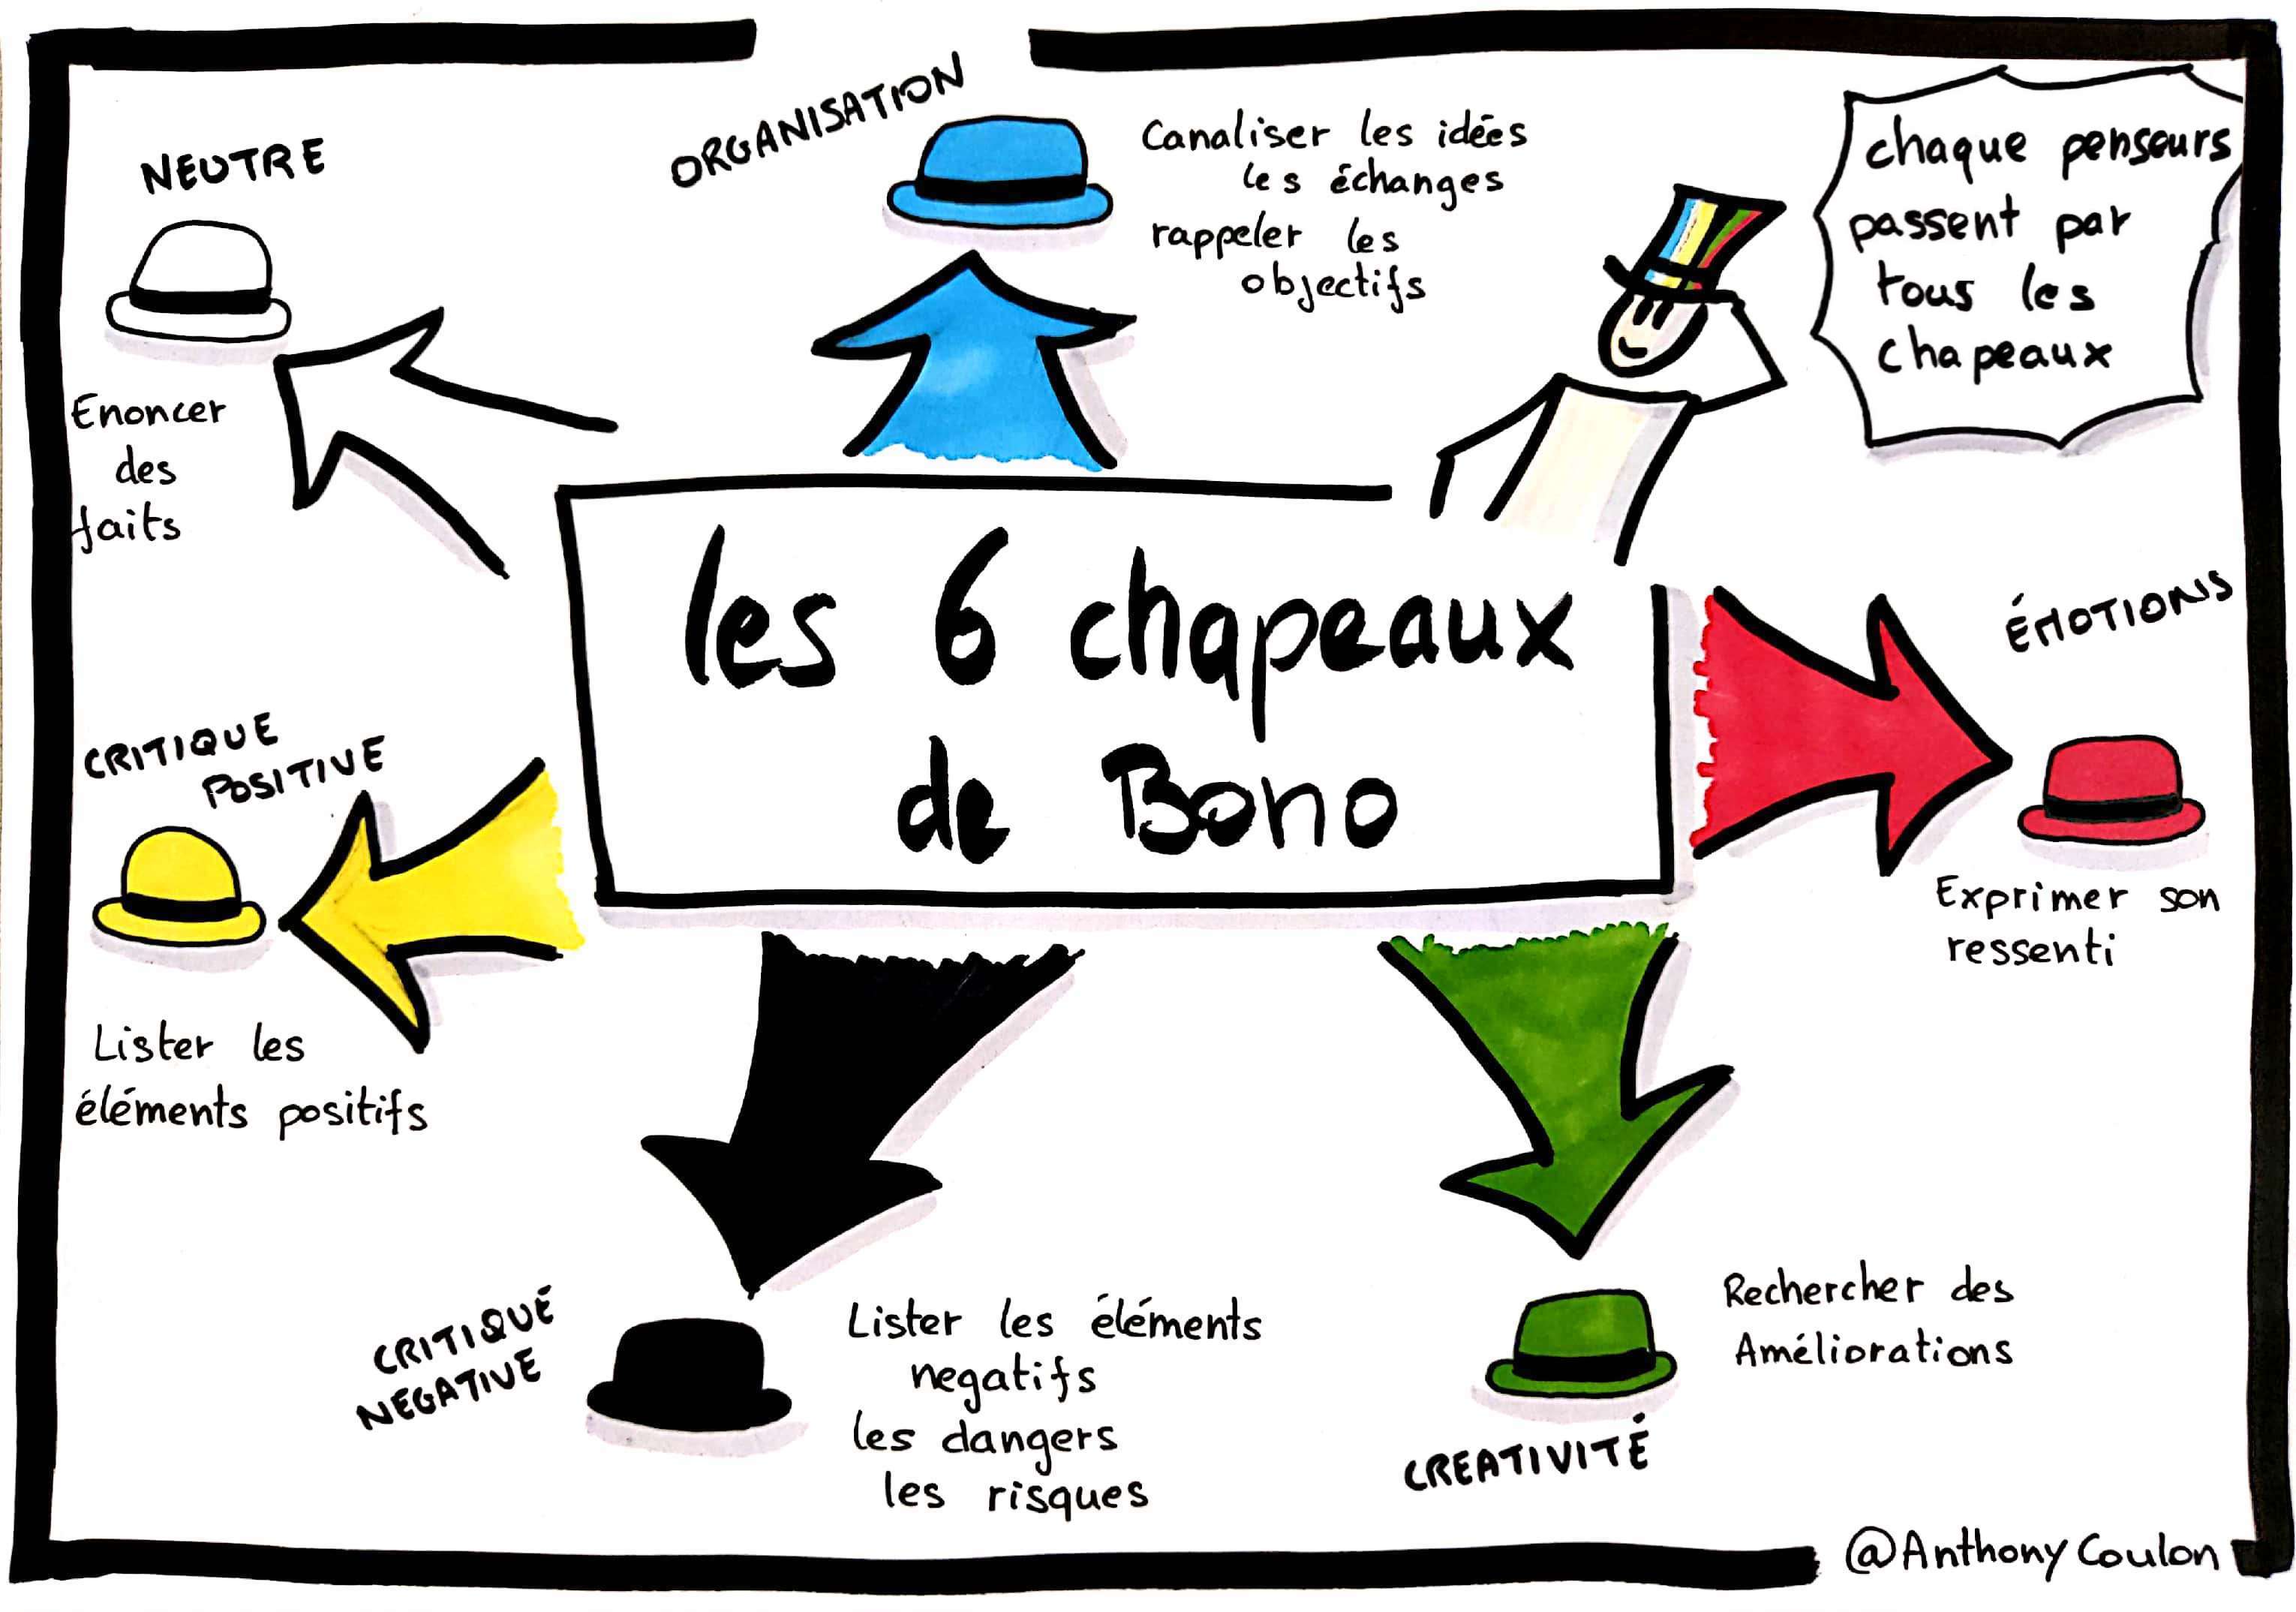 NEUTRE
Enoncer
des
faits
ORGANISATION
Canaliser les idées
les échanges
rappeler les
objectifs
chaque penseurs
passent par
tous les
chapeaux
les 6 chapeaux
de Bono
ÉMOTIONS
Exprimer son
ressenti
CRITIQUE
POSITIVE
Lister les
éléments positifs
CRITIQUE
NEGATIVE
Lister les éléments
negatifs
les dangers
les risques
Rechercher des
Améliorations
CREATIVITÉ
@Anthony Coulon